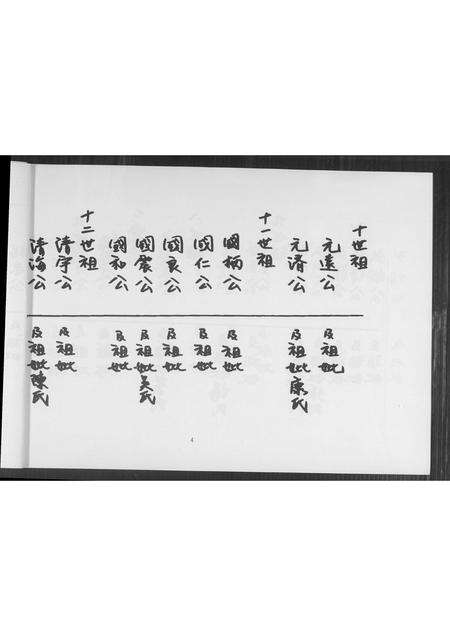 十世祖
元遠公 及祖妣
元濟公 及祖妣康氏
十一世祖
國柄公 及祖妣
國仁公 及祖妣
國良公 及祖妣
國宸公 及祖妣吳氏
國和公 及祖妣
十二世祖
清宇公 及祖妣
清海公 及祖妣陳氏
4